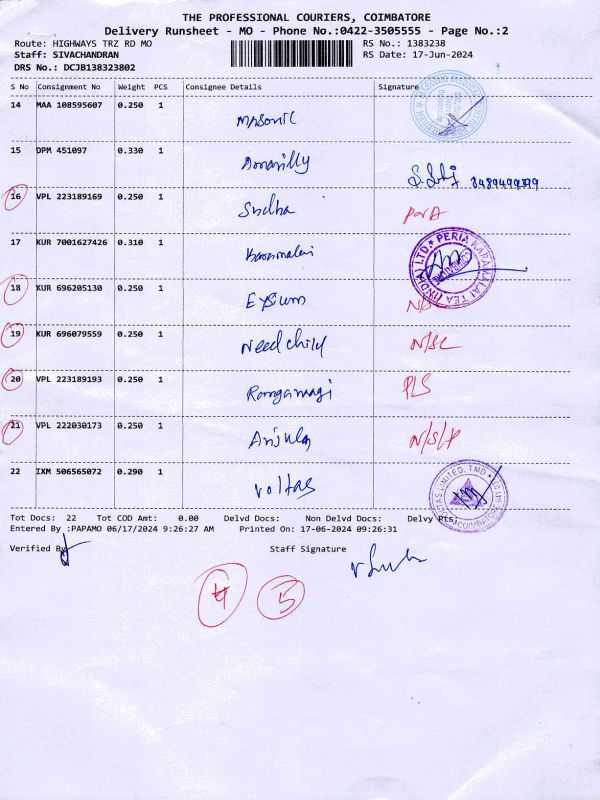 THE PROFESSIONAL COURIERS, COIMBATORE
Delivery Runsheet - MO - Phone No.:0422-3505555 - Page No.:2
Route: HIGHWAYS TRZ RD MO RS No.: 1383238
Staff: SIVACHANDRAN RS Date: 17-Jun-2024
DRS No.: DCJB138323802
S No Consignment No Weight PCS Consignee Details Signature
14 MAA 108595607 0.250 1 Masonic
15 DPM 451097 0.330 1
16 VPL 223189169 0.250 1 Sudha
17 KUR 7001627426 0.310 1
PERIA KARAMALAI TEA (INDIA) LTD.
18 KUR 696205130 0.250 1
19 KUR 696079559 0.250 1 Need child
20 VPL 223189193 0.250 1 PLS
21 VPL 222030173 0.250 1 Anjula
22 IXM 506565072 0.290 1 Voltas
Tot Docs: 22 Tot COD Amt: 0.00 Delvd Docs: Non Delvd Docs: Delvy Pts:
Entered By :PAPAMO 06/17/2024 9:26:27 AM Printed On: 17-06-2024 09:26:31
Verified By Staff Signature
4 5